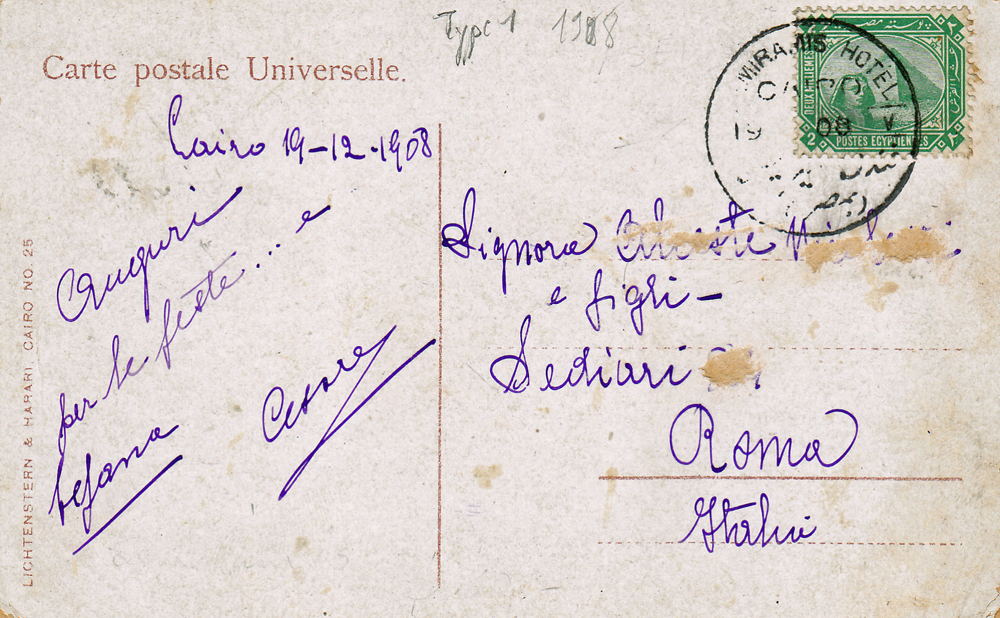 Type 1 1908
Carte postale Universelle.
MIRAMIS HOTEL
CAIRO
19 08
بوسته مصر
DEUX MILLIEMES
2 POSTES EGYPTIENNES 2
Cairo 19-12-1908
Auguri
per le feste... e
befana
Cesare
Signora
e figli -
Sediari
Roma
Italia
LICHTENSTERN & HARARI CAIRO NO. 25